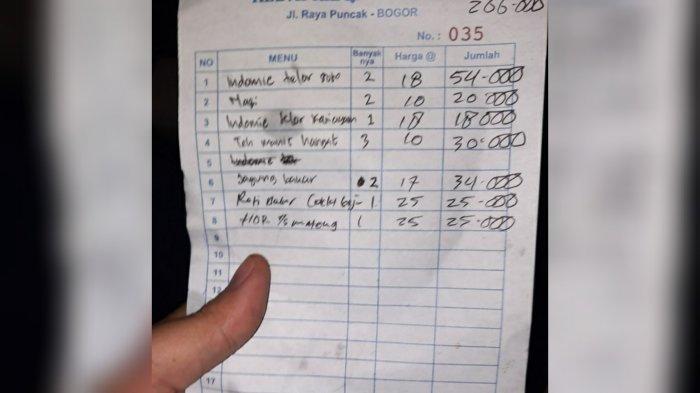 206-000
Jl. Raya Puncak - BOGOR
No. : 035
NO MENU Banyak nya Harga @ Jumlah
1 Indomie telor soto 2 18 54-000
2 Nasi 2 10 20 000
3 Indomie telor 1 18 18000
4 Teh manis hangat 3 10 30-000
5 Indomie
6 Jagung bakar 2 17 34-000
7 Roti Bakar 1 25 25-000
8 1/2 mateng 1 25 25-000
9
10
11
17